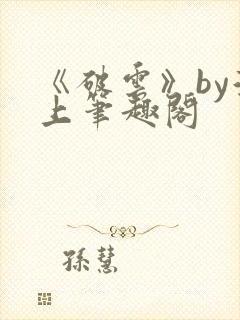 《破雲》by
上筆趣閣
孫慧